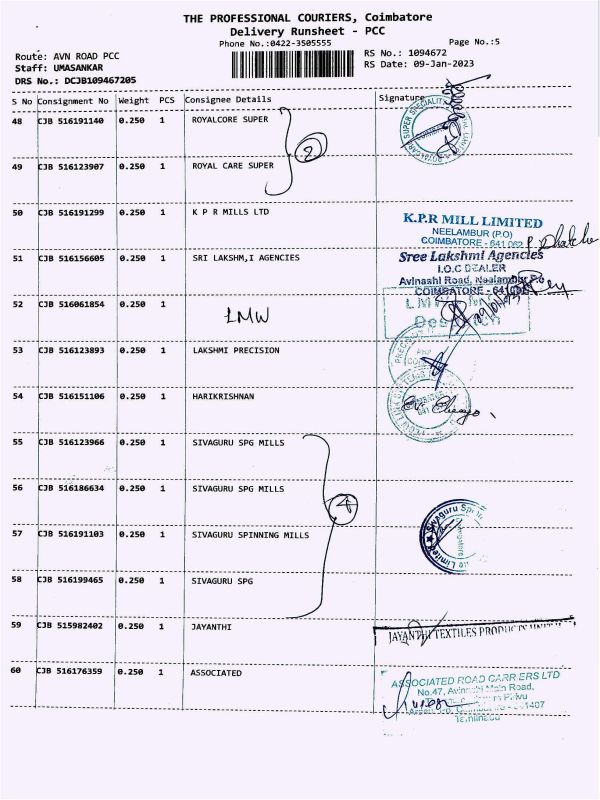 THE PROFESSIONAL COURIERS, Coimbatore
Delivery Runsheet - PCC
Phone No.:0422-3505555
Page No.:5
Route: AVN ROAD PCC
RS No.: 1094672
Staff: UMASANKAR
RS Date: 09-Jan-2023
DRS No.: DCJB109467205
S No Consignment No Weight PCS Consignee Details Signature
48 CJB 516191140 0.250 1 ROYALCORE SUPER
2
49 CJB 516123907 0.250 1 ROYAL CARE SUPER
50 CJB 516191299 0.250 1 K P R MILLS LTD
K.P.R MILL LIMITED
NEELAMBUR (P.O)
COIMBATORE - 641 062
51 CJB 516156605 0.250 1 SRI LAKSHM,I AGENCIES
Sree Lakshmi Agencies
I.O.C DEALER
Avinashi Road, Neelambur P.o
COIMBATORE - 641062
52 CJB 516061854 0.250 1 LMW
53 CJB 516123893 0.250 1 LAKSHMI PRECISION
54 CJB 516151106 0.250 1 HARIKRISHNAN
55 CJB 516123966 0.250 1 SIVAGURU SPG MILLS
56 CJB 516186634 0.250 1 SIVAGURU SPG MILLS
4
57 CJB 516191103 0.250 1 SIVAGURU SPINNING MILLS
58 CJB 516199465 0.250 1 SIVAGURU SPG
59 CJB 515982402 0.250 1 JAYANTHI
JAYANTHI TEXTILES PRODUCTS
60 CJB 516176359 0.250 1 ASSOCIATED
ASSOCIATED ROAD CARRIERS LTD
No.47, Avinashi Main Road,